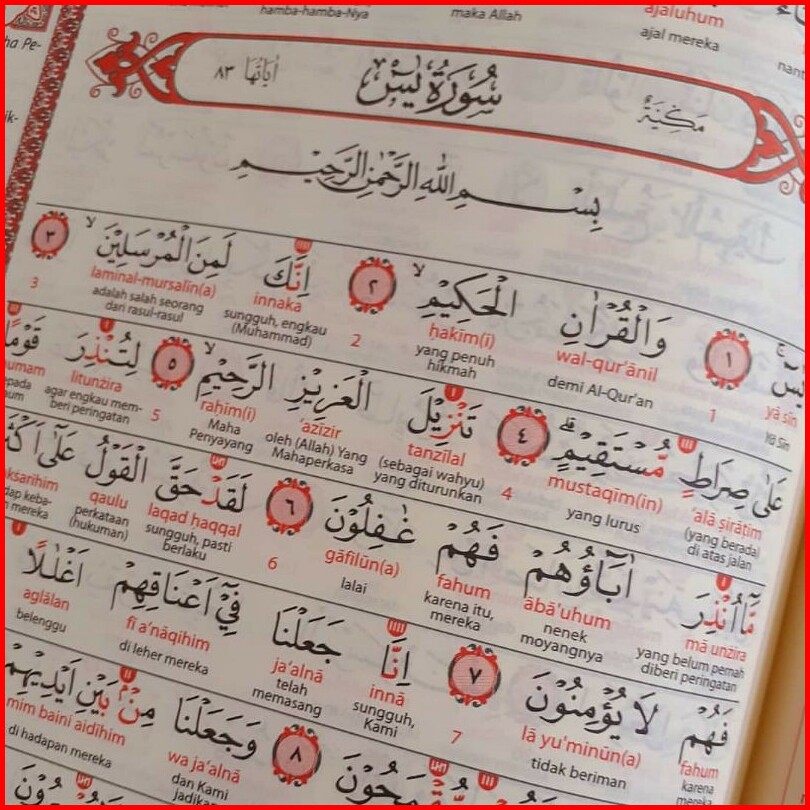 hamba-hamba-Nya maka Allah ajaluhum
ajal mereka
مَكِّيَّةٌ سُوْرَةُ يٰسۤ اٰيَاتُهَا ٨٣
بِسْمِ اللّٰهِ الرَّحْمٰنِ الرَّحِيْمِ
يٰسۤ ۚ ١ وَالْقُرْاٰنِ الْحَكِيْمِۙ ٢ اِنَّكَ لَمِنَ الْمُرْسَلِيْنَۙ ٣
yā sīn 1 wal-qur'ānil ḥakīm(i) 2 innaka laminal-mursalīn(a) 3
Yā Sīn demi Al-Qur'an yang penuh hikmah sungguh, engkau (Muhammad) adalah salah seorang dari rasul-rasul
عَلٰى صِرَاطٍ مُّسْتَقِيْمٍۗ ٤ تَنْزِيْلَ الْعَزِيْزِ الرَّحِيْمِۙ ٥ لِتُنْذِرَ قَوْمًا
'alā ṣirāṭim mustaqīm(in) 4 tanzīlal 'azīzir raḥīm(i) 5 litunżira
(yang berada) di atas jalan yang lurus (sebagai wahyu) yang diturunkan oleh (Allah) Yang Mahaperkasa Maha Penyayang agar engkau memberi peringatan
مَّآ اُنْذِرَ اٰبَاۤؤُهُمْ فَهُمْ غٰفِلُوْنَ ٦ لَقَدْ حَقَّ الْقَوْلُ عَلٰٓى
mā unżira ābā'uhum fahum gāfilūn(a) 6 laqad ḥaqqal qaulu
yang belum pernah diberi peringatan nenek moyangnya karena itu, mereka lalai sungguh, pasti berlaku perkataan (hukuman)
فَهُمْ لَا يُؤْمِنُوْنَ ٧ اِنَّا جَعَلْنَا فِيْٓ اَعْنَاقِهِمْ اَغْلٰلًا
fahum lā yu'minūn(a) 7 innā ja'alnā fī a'nāqihim aglālan
karena mereka tidak beriman sungguh, Kami telah memasang di leher mereka belenggu
مُّقْمَحُوْنَ ٨ وَجَعَلْنَا مِنْۢ بَيْنِ اَيْدِيْهِمْ
wa ja'alnā mim baini aidihim
dan Kami jadikan di hadapan mereka